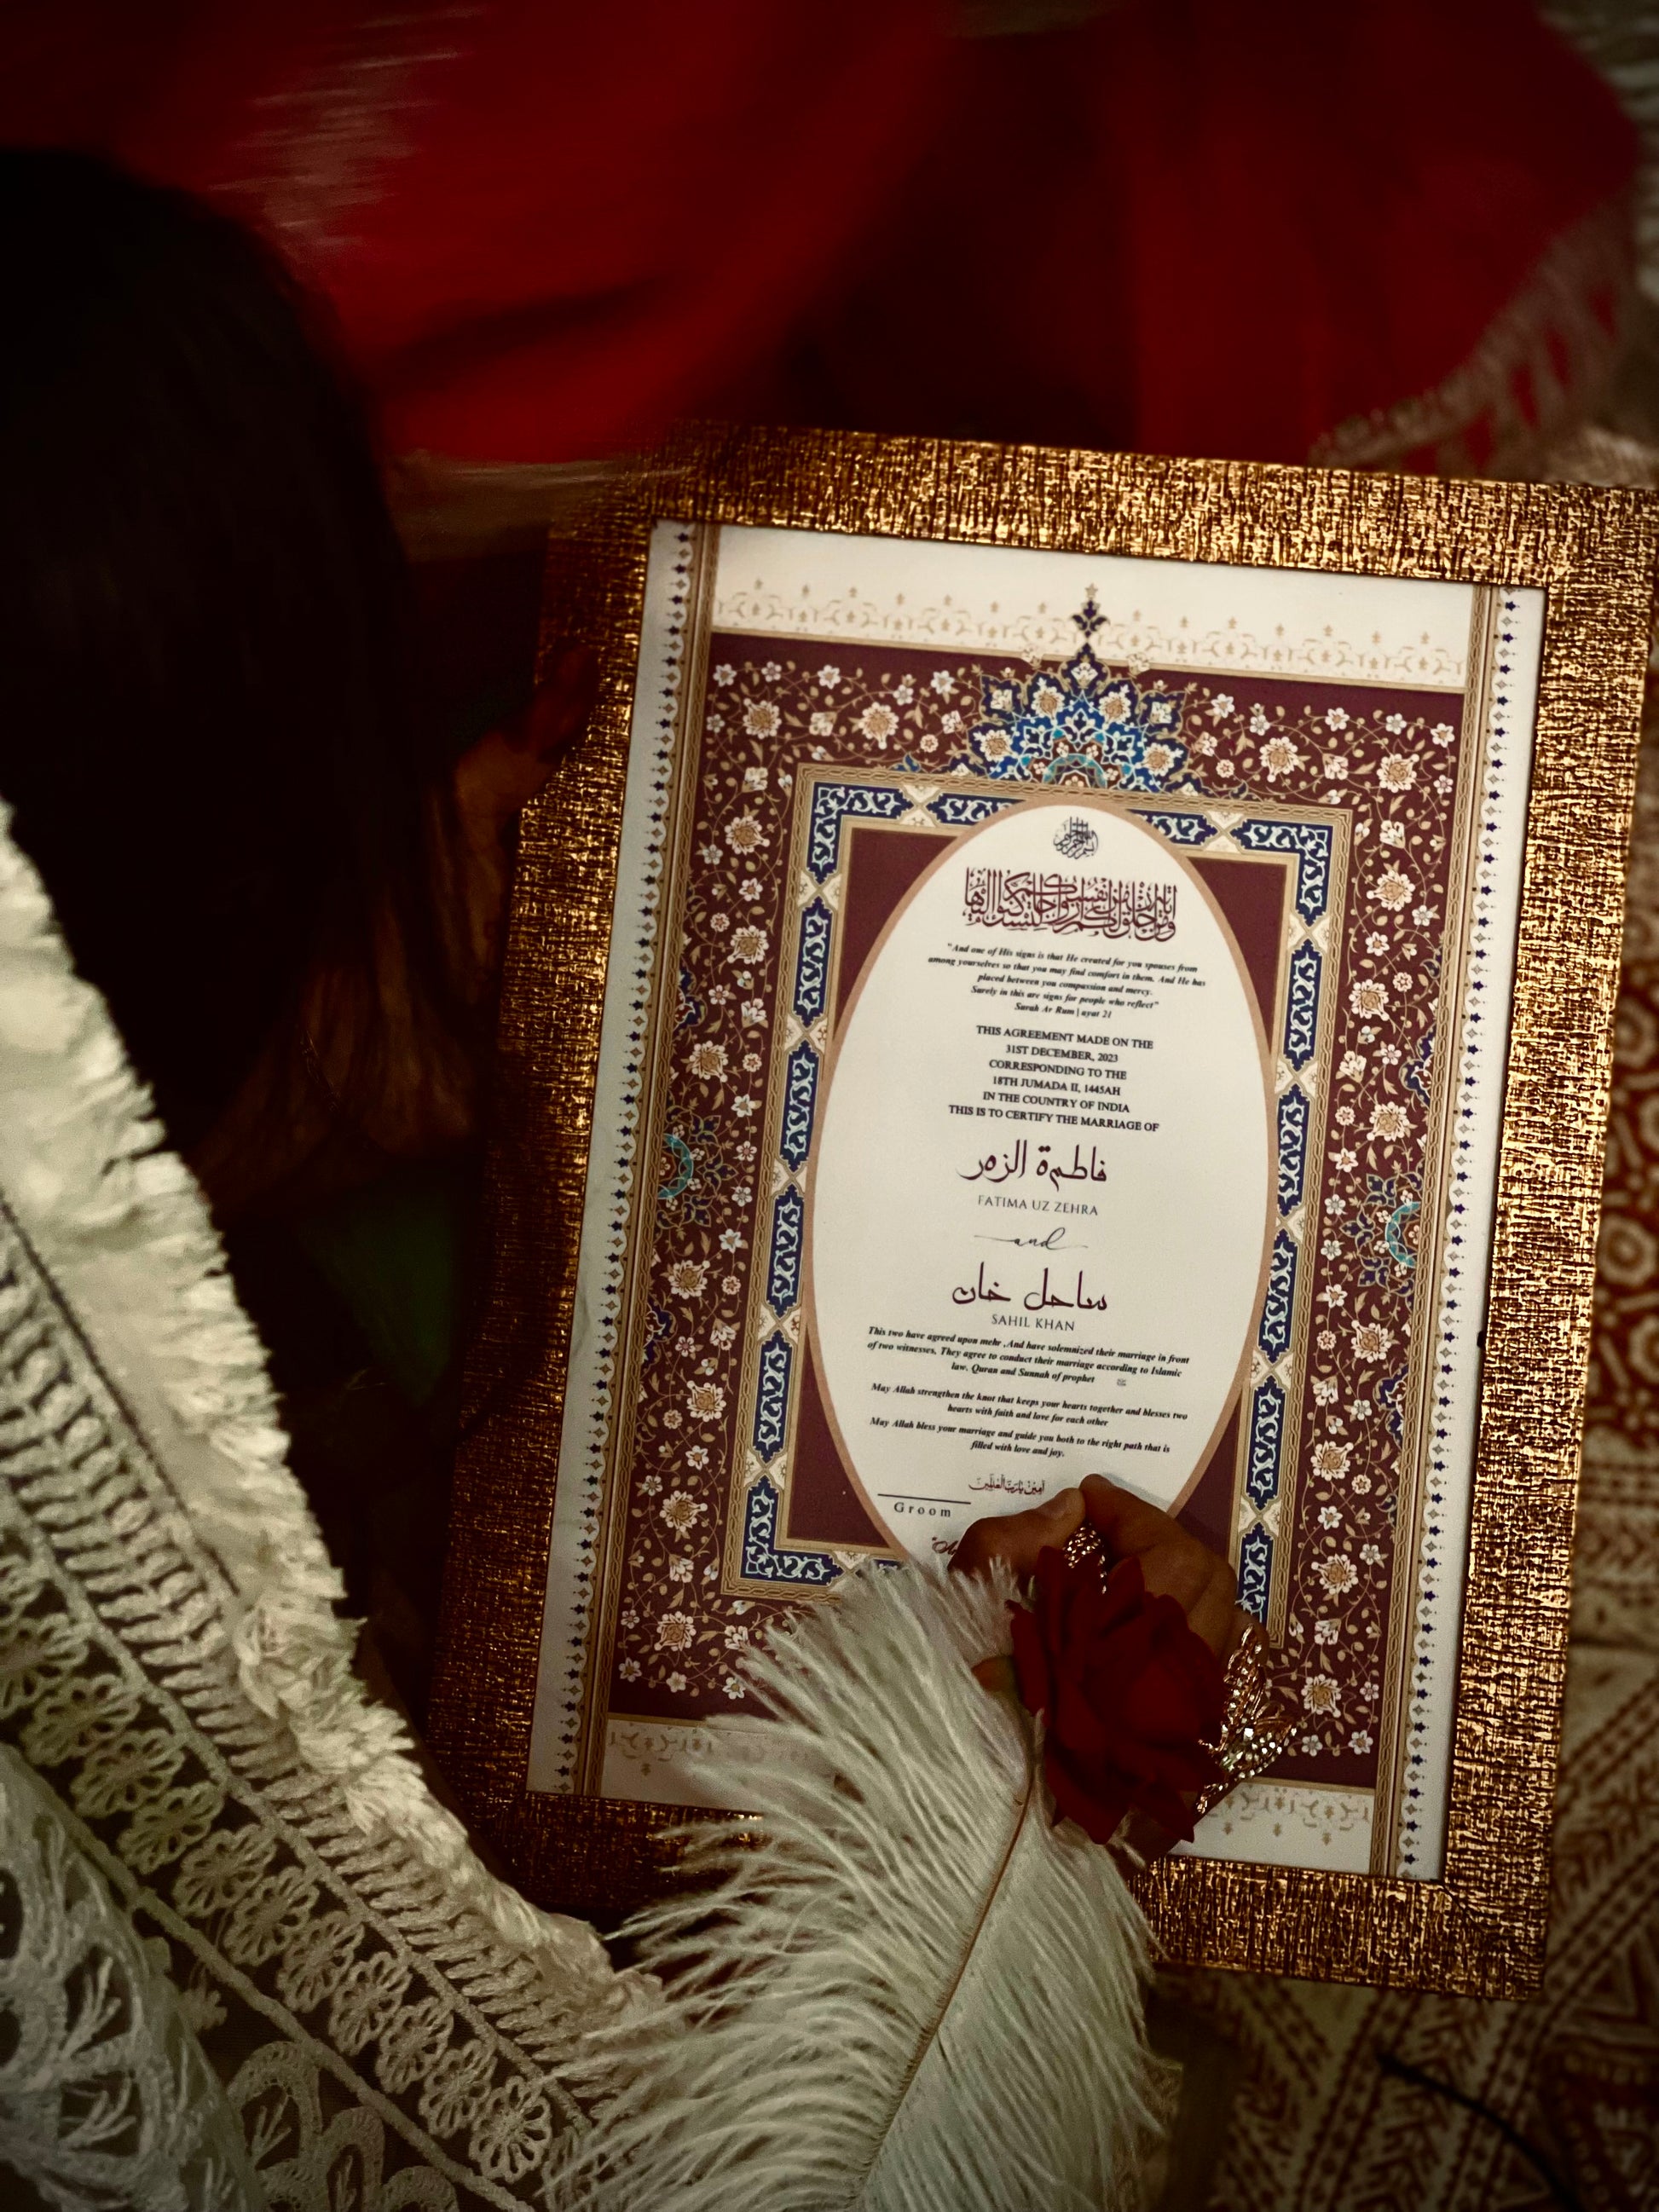 "And one of His signs is that He created for you spouses from
among yourselves so that you may find comfort in them. And He has
placed between you compassion and mercy.
Surely in this are signs for people who reflect"
Surah Ar Rum | ayat 21
THIS AGREEMENT MADE ON THE
31ST DECEMBER, 2023
CORRESPONDING TO THE
18TH JUMADA II, 1445AH
IN THE COUNTRY OF INDIA
THIS IS TO CERTIFY THE MARRIAGE OF
فاطمة الزهر
FATIMA UZ ZEHRA
and
ساحل خان
SAHIL KHAN
This two have agreed upon mehr ,And have solemnized their marriage in front
of two witnesses. They agree to conduct their marriage according to Islamic
law. Quran and Sunnah of prophet
May Allah strengthen the knot that keeps your hearts together and blesses two
hearts with faith and love for each other
May Allah bless your marriage and guide you both to the right path that is
filled with love and joy.
آمِيْن يَارَبَّ الْعَالَمِين
Groom